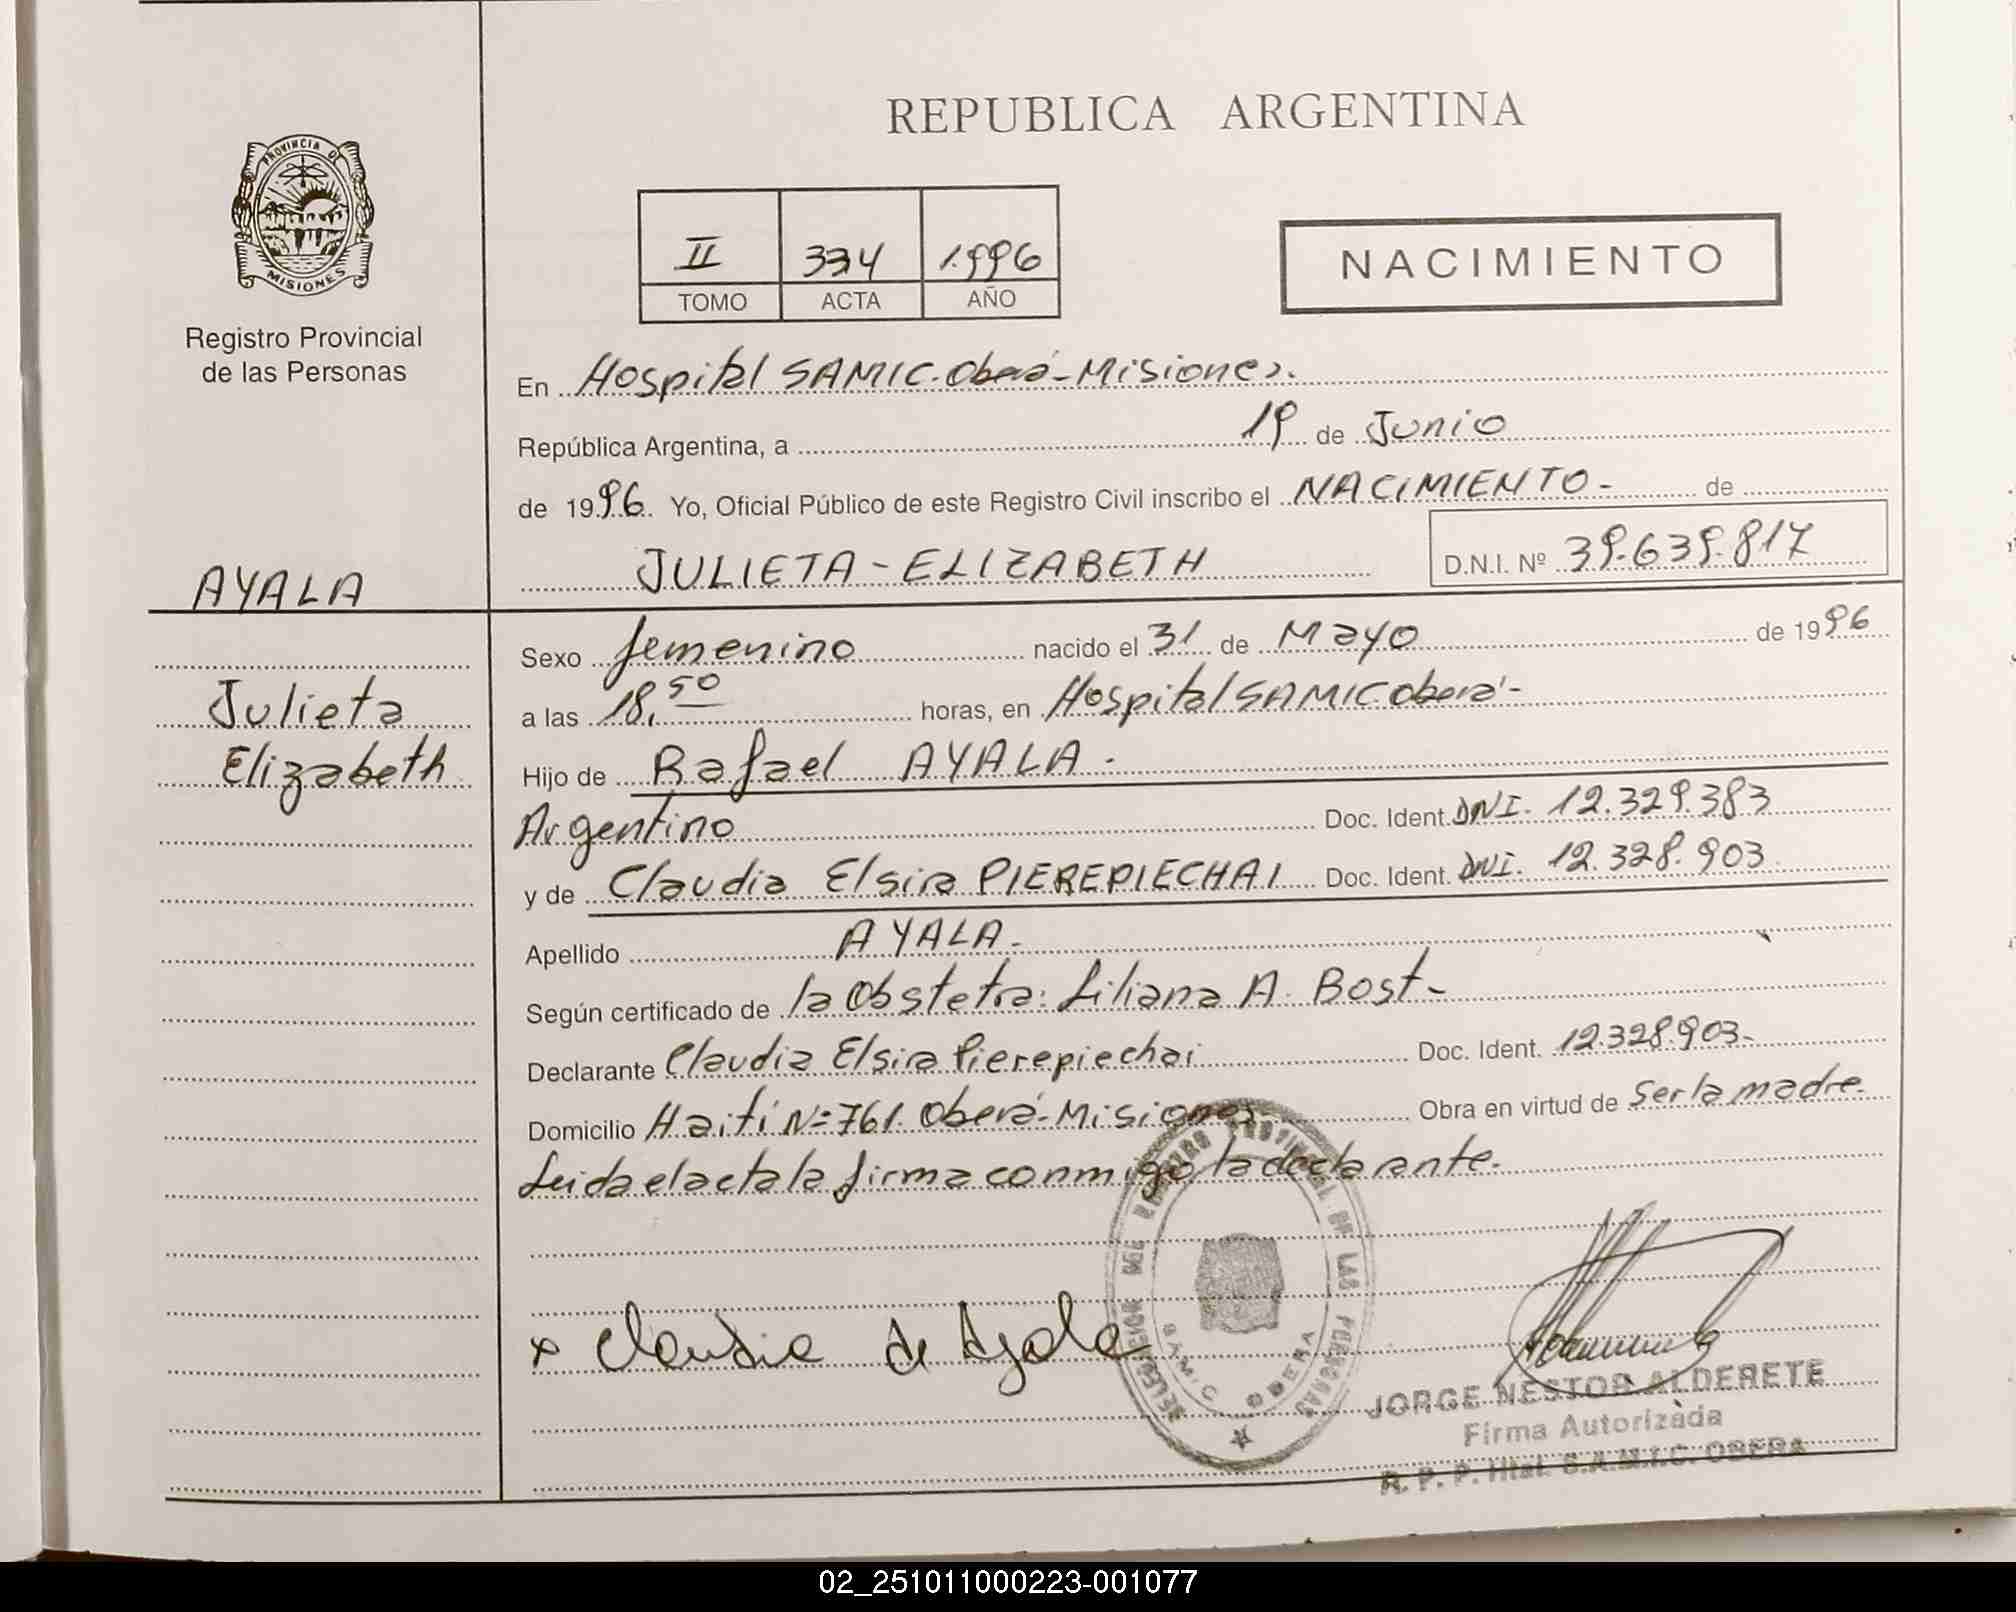 REPUBLICA ARGENTINA
PROVINCIA DE
MISIONES
Registro Provincial
de las Personas
II 334 1996
TOMO ACTA AÑO
NACIMIENTO
En Hospital SAMIC. Oberá - Misiones.
República Argentina, a 19 de Junio
de 1996. Yo, Oficial Público de este Registro Civil inscribo el NACIMIENTO - de
JULIETA - ELIZABETH D.N.I. Nº 39.639.817
AYALA
Julieta
Elizabeth
Sexo femenino nacido el 31 de Mayo de 1996
a las 18,50 horas, en Hospital SAMIC Oberá -
Hijo de Rafael AYALA.
Argentino Doc. Ident. DNI. 12.329.383
y de Claudia Elsira PIEREPIECHAI Doc. Ident. DNI. 12.328.903
Apellido AYALA.
Según certificado de la Obstetra: Liliana A. Bost -
Declarante Claudia Elsira Pierepiechai Doc. Ident. 12.328.903.
Domicilio Haití Nº 761. Oberá - Misiones Obra en virtud de ser la madre.
Leida el acta la firma conmigo la declarante.
x Claudia de Ayala
DEL REGISTRO PROVINCIAL DE LAS PERSONAS
SAMIC OBERA
JORGE NESTOR ALDERETE
Firma Autorizada
R. P. P. Htal. S.A.M.I.C. OBERA
02_251011000223-001077